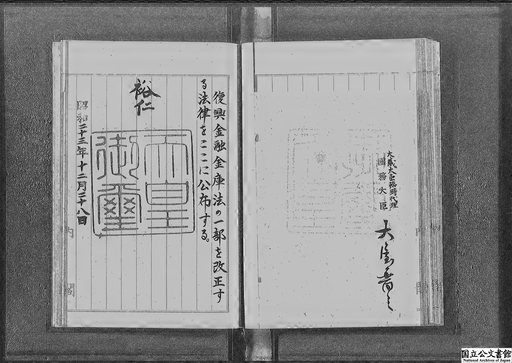 復興金融金庫法の一部を改正す
る法律をここに公布する。
裕仁
天皇
御璽
昭和二十三年十二月二十八日
大蔵大臣臨時代理
国務大臣
国立公文書館
National Archives of Japan